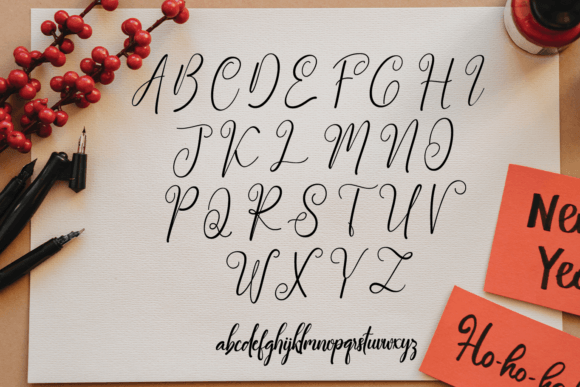 A B C D E F G H I
J K L M N O
P Q R S T U V
W X Y Z
abcdefghijklmnopqrstuvwxyz
Ho-ho-ho